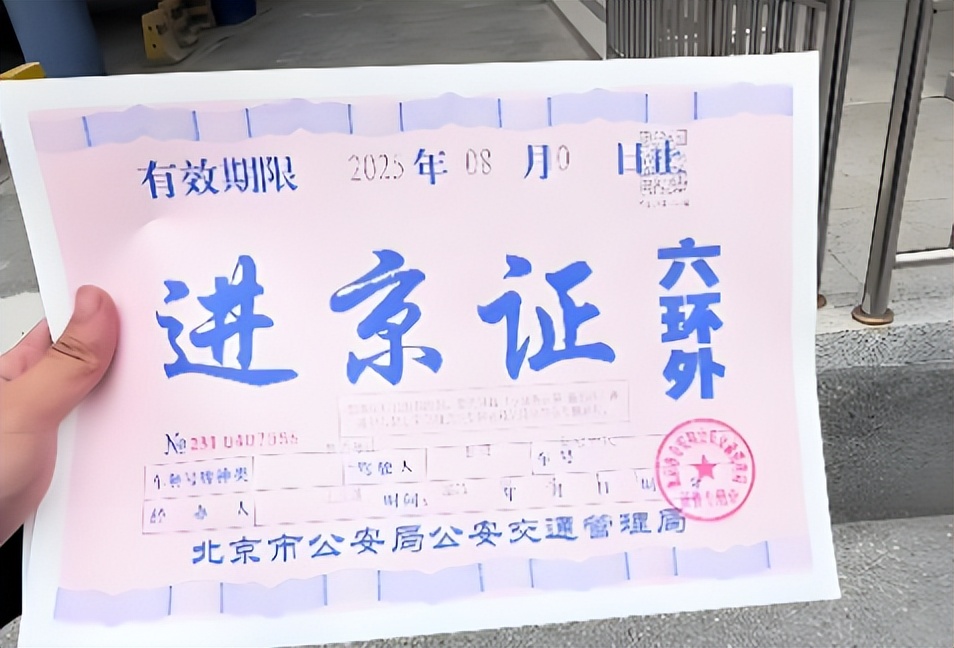 有效期限 2025 年 08 月0 日止
进京证
六环外
№
车辆号牌种类 驾驶人 车号
经办人 时间:
北京市公安局公安交通管理局